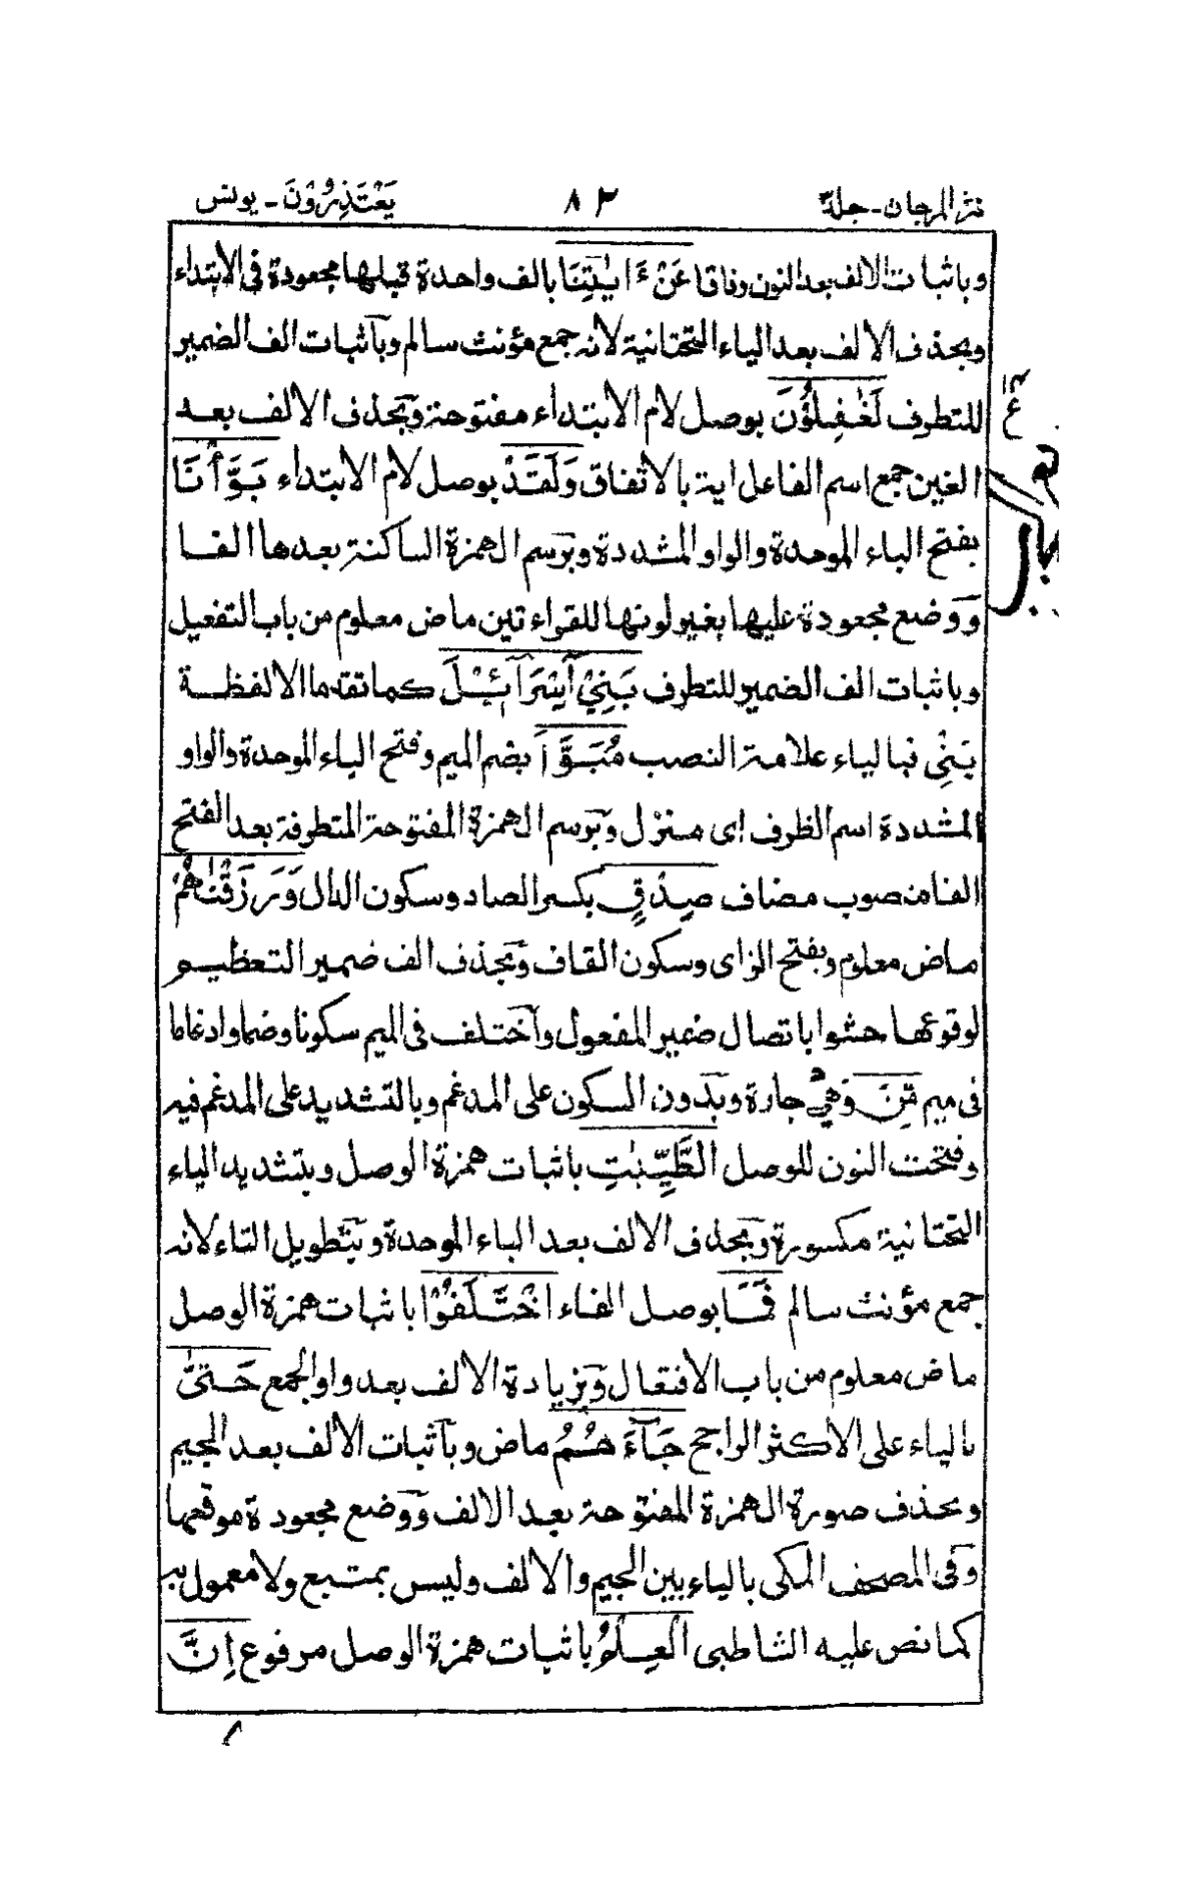 نثر المرجان - جلد ٨٢ يَعْتَذِرُوْنَ - يونس
وباثبات الالف بعد النون وفاقا عَنْ ءَايٰتِنَا بالف واحدة قبلها مجعودة فى الابتداء
وبحذف الالف بعد الياء التحتانية لانه جمع مؤنث سالم وباثبات الف الضمير
للتطرف لَغٰفِلُوْنَ بوصل لام الابتداء مفتوحة وبحذف الالف بعد
الغين جمع اسم الفاعل اية بالاتفاق وَلَقَدْ بوصل لام الابتداء بَوَّأْنَا
بفتح الباء الموحدة والواو المشددة وبرسم الهمزة الساكنة بعدها الفا
ووضع مجعودة عليها بغير لونها للقراءتين ماض معلوم من باب التفعيل
وباثبات الف الضمير للتطرف بَنِيْٓ اِسْرَآئِيْلَ كما تقدما الا لفظة
بَنِيْ فبالياء علامة النصب مُبَوَّاَ بضم الميم وفتح الباء الموحدة والواو
المشددة اسم الظرف اى منزل وبرسم الهمزة المفتوحة المتطرفة بعد الفتح
الفا منصوب مضاف صِدْقٍ بكسر الصاد وسكون الدال وَرَزَقْنٰهُمْ
ماض معلوم وبفتح الزاى وسكون القاف وبحذف الف ضمير التعظيم
لوقوعها حشوا باتصال ضمير المفعول واختلف فى الميم سكونا وضما وادغاما
فى ميم مِّنَ وهى جارة وبدون السكون على المدغم وبالتشديد على المدغم فيه
وفتحت النون للوصل الطَّيِّبٰتِ باثبات همزة الوصل وبتشديد الياء
التحتانية مكسورة وبحذف الالف بعد الباء الموحدة وبتطويل التاء لانه
جمع مؤنث سالم فَمَا بوصل الفاء اخْتَلَفُوْا باثبات همزة الوصل
ماض معلوم من باب الافتعال وبزيادة الالف بعد واو الجمع حَتّٰى
بالياء على الاكثر الراجح جَآءَهُمُ ماض وباثبات الالف بعد الجيم
وبحذف صورة الهمزة المفتوحة بعد الالف ووضع مجعودة موقعها
وفى المصحف المكى بالياء بين الجيم والالف وليس بمتبع ولا معمول به
كما نص عليه الشاطبى الْعِلْمُ باثبات همزة الوصل مرفوع اِنَّ